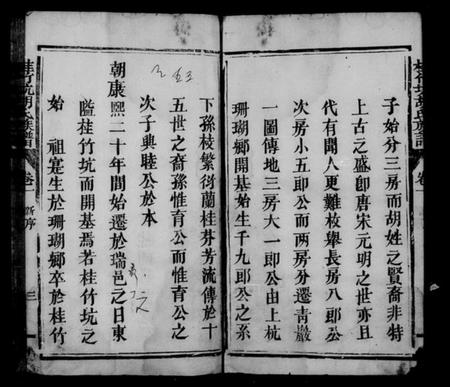 桂竹坑胡氏族譜
卷
子始分三房而胡姓之賢裔非特
上古之盛卽唐宋元明之世亦且
代有聞人更難枚舉長房八郎公
次房小五郎公而兩房分遷靑巖
一圖傳地三房大一郎公由上杭
珊瑚鄉開基始生千九郎公之系
下孫枝繁衍蘭桂芬芳流傳於十
五世之裔孫惟育公而惟育公之
次子典睦公於本
朝康熙二十年間始遷於瑞邑之日東
隘桂竹坑而開基焉若桂竹坑之
始 祖寔生於珊瑚鄉卒於桂竹
桂竹坑胡氏族譜
卷
新序
三